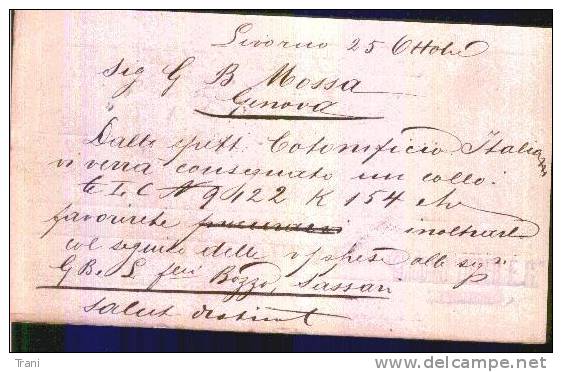 Livorno 25 Ottobre
Sig G B Mossa
Genova
Dalla spett. Cotonificio Italiano
vi verrà consegnato un collo
te L C N 9422 K 154 che
favorirete inoltrare
col seguito delle v/ spese alli sigri
G B e L flli Bozzo, Sassari
Salut distint
Trani
delcampe.net